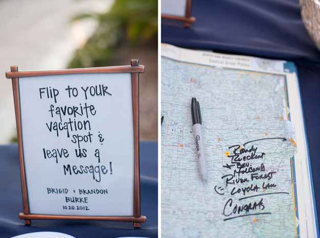 Flip to YOUR
favorite
vacation
spot &
leave us a
Message!
BRIGID + BRANDON
BURKE
10.20.2012
Randy
+ Bev
River Forest
Loyola Law
CONGRATS